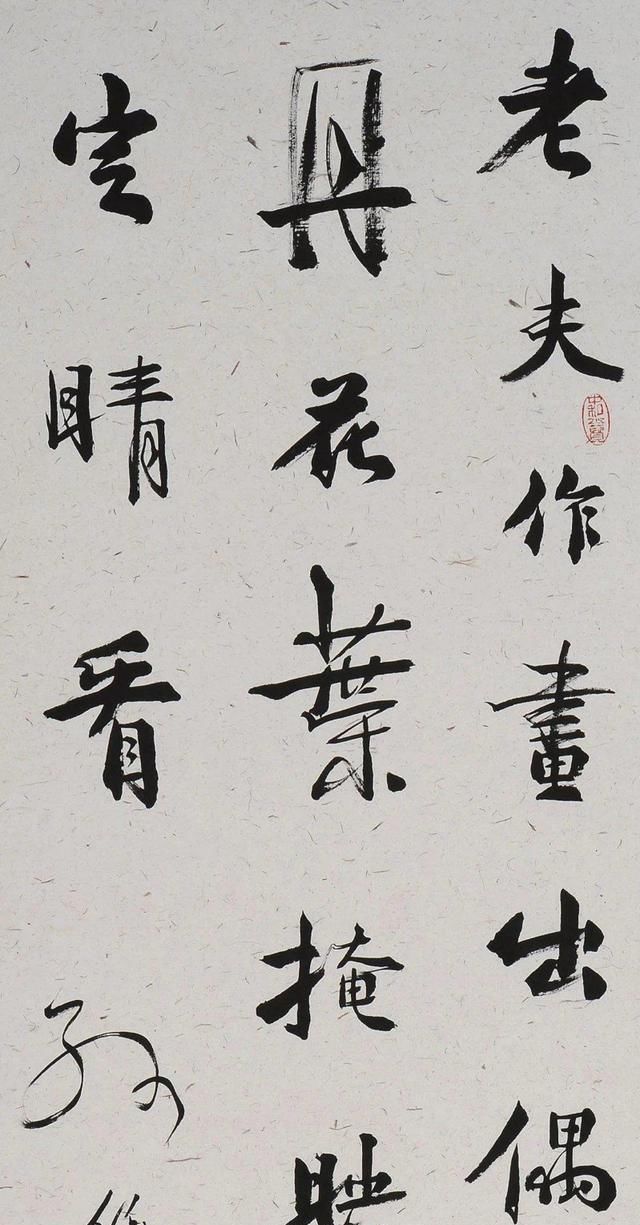 老夫作畫出偶
丹花葉掩映
定睛看